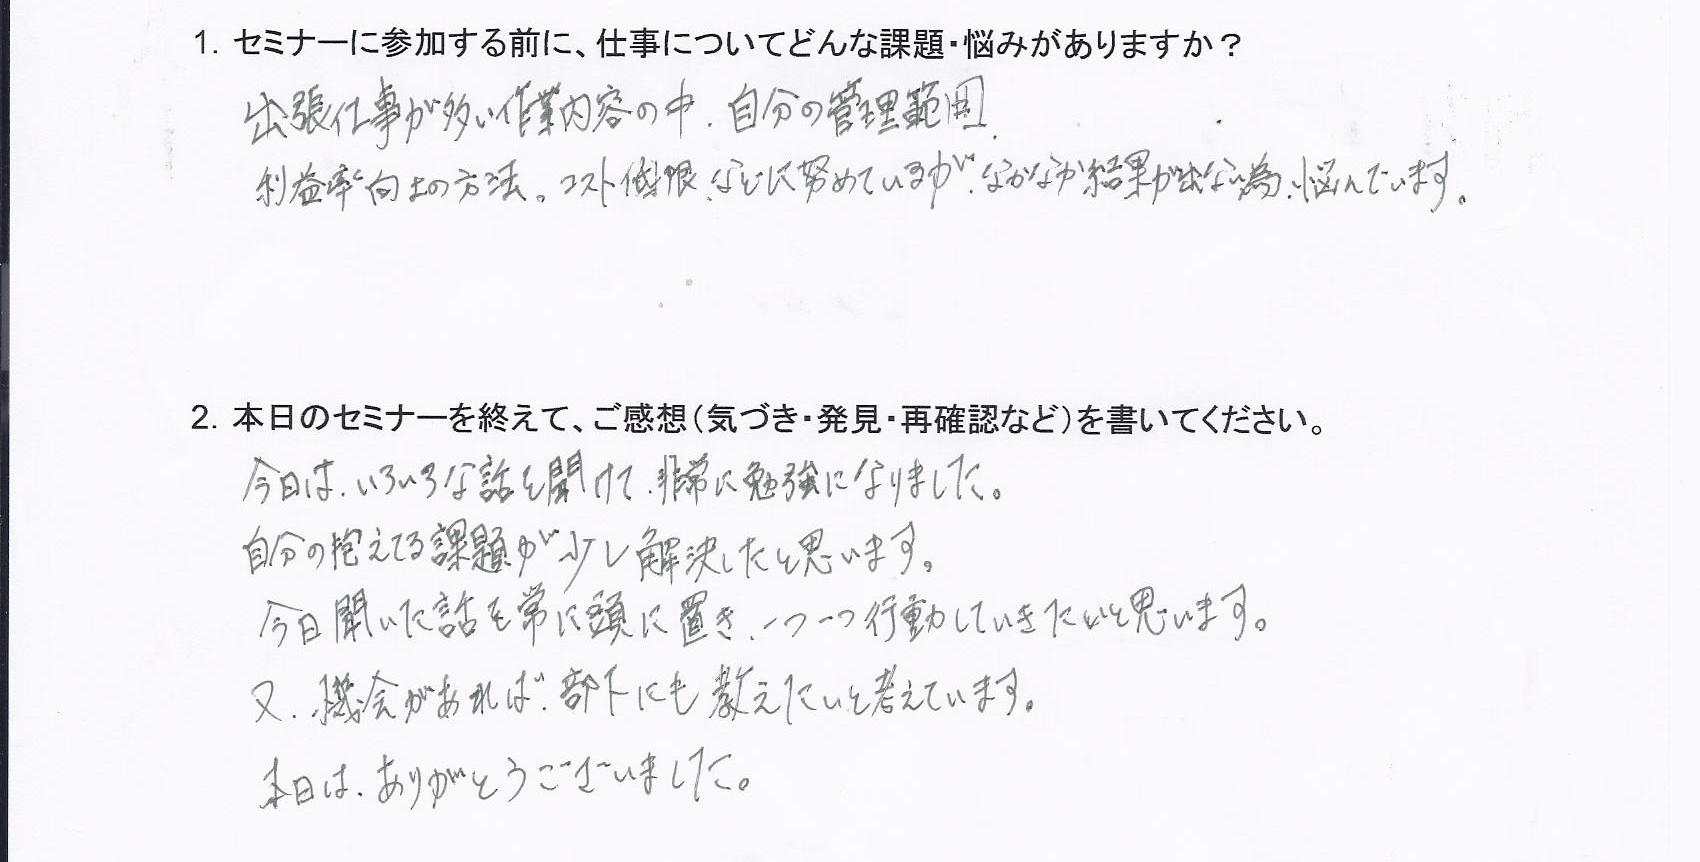 1. セミナーに参加する前に、仕事についてどんな課題・悩みがありますか？
出張仕事が多い作業内容の中、自分の管理範囲、
利益率向上の方法。コスト低限、などに努めているが、なかなか結果が出ない為、悩んでいます。
2. 本日のセミナーを終えて、ご感想（気づき・発見・再確認など）を書いてください。
今日は、いろいろな話を聞けて、非常に勉強になりました。
自分の抱えてる課題が少し解決したと思います。
今日聞いた話を常に頭に置き、一つ一つ行動していきたいと思います。
又、機会があれば、部下にも教えたいと考えています。
本日は、ありがとうございました。